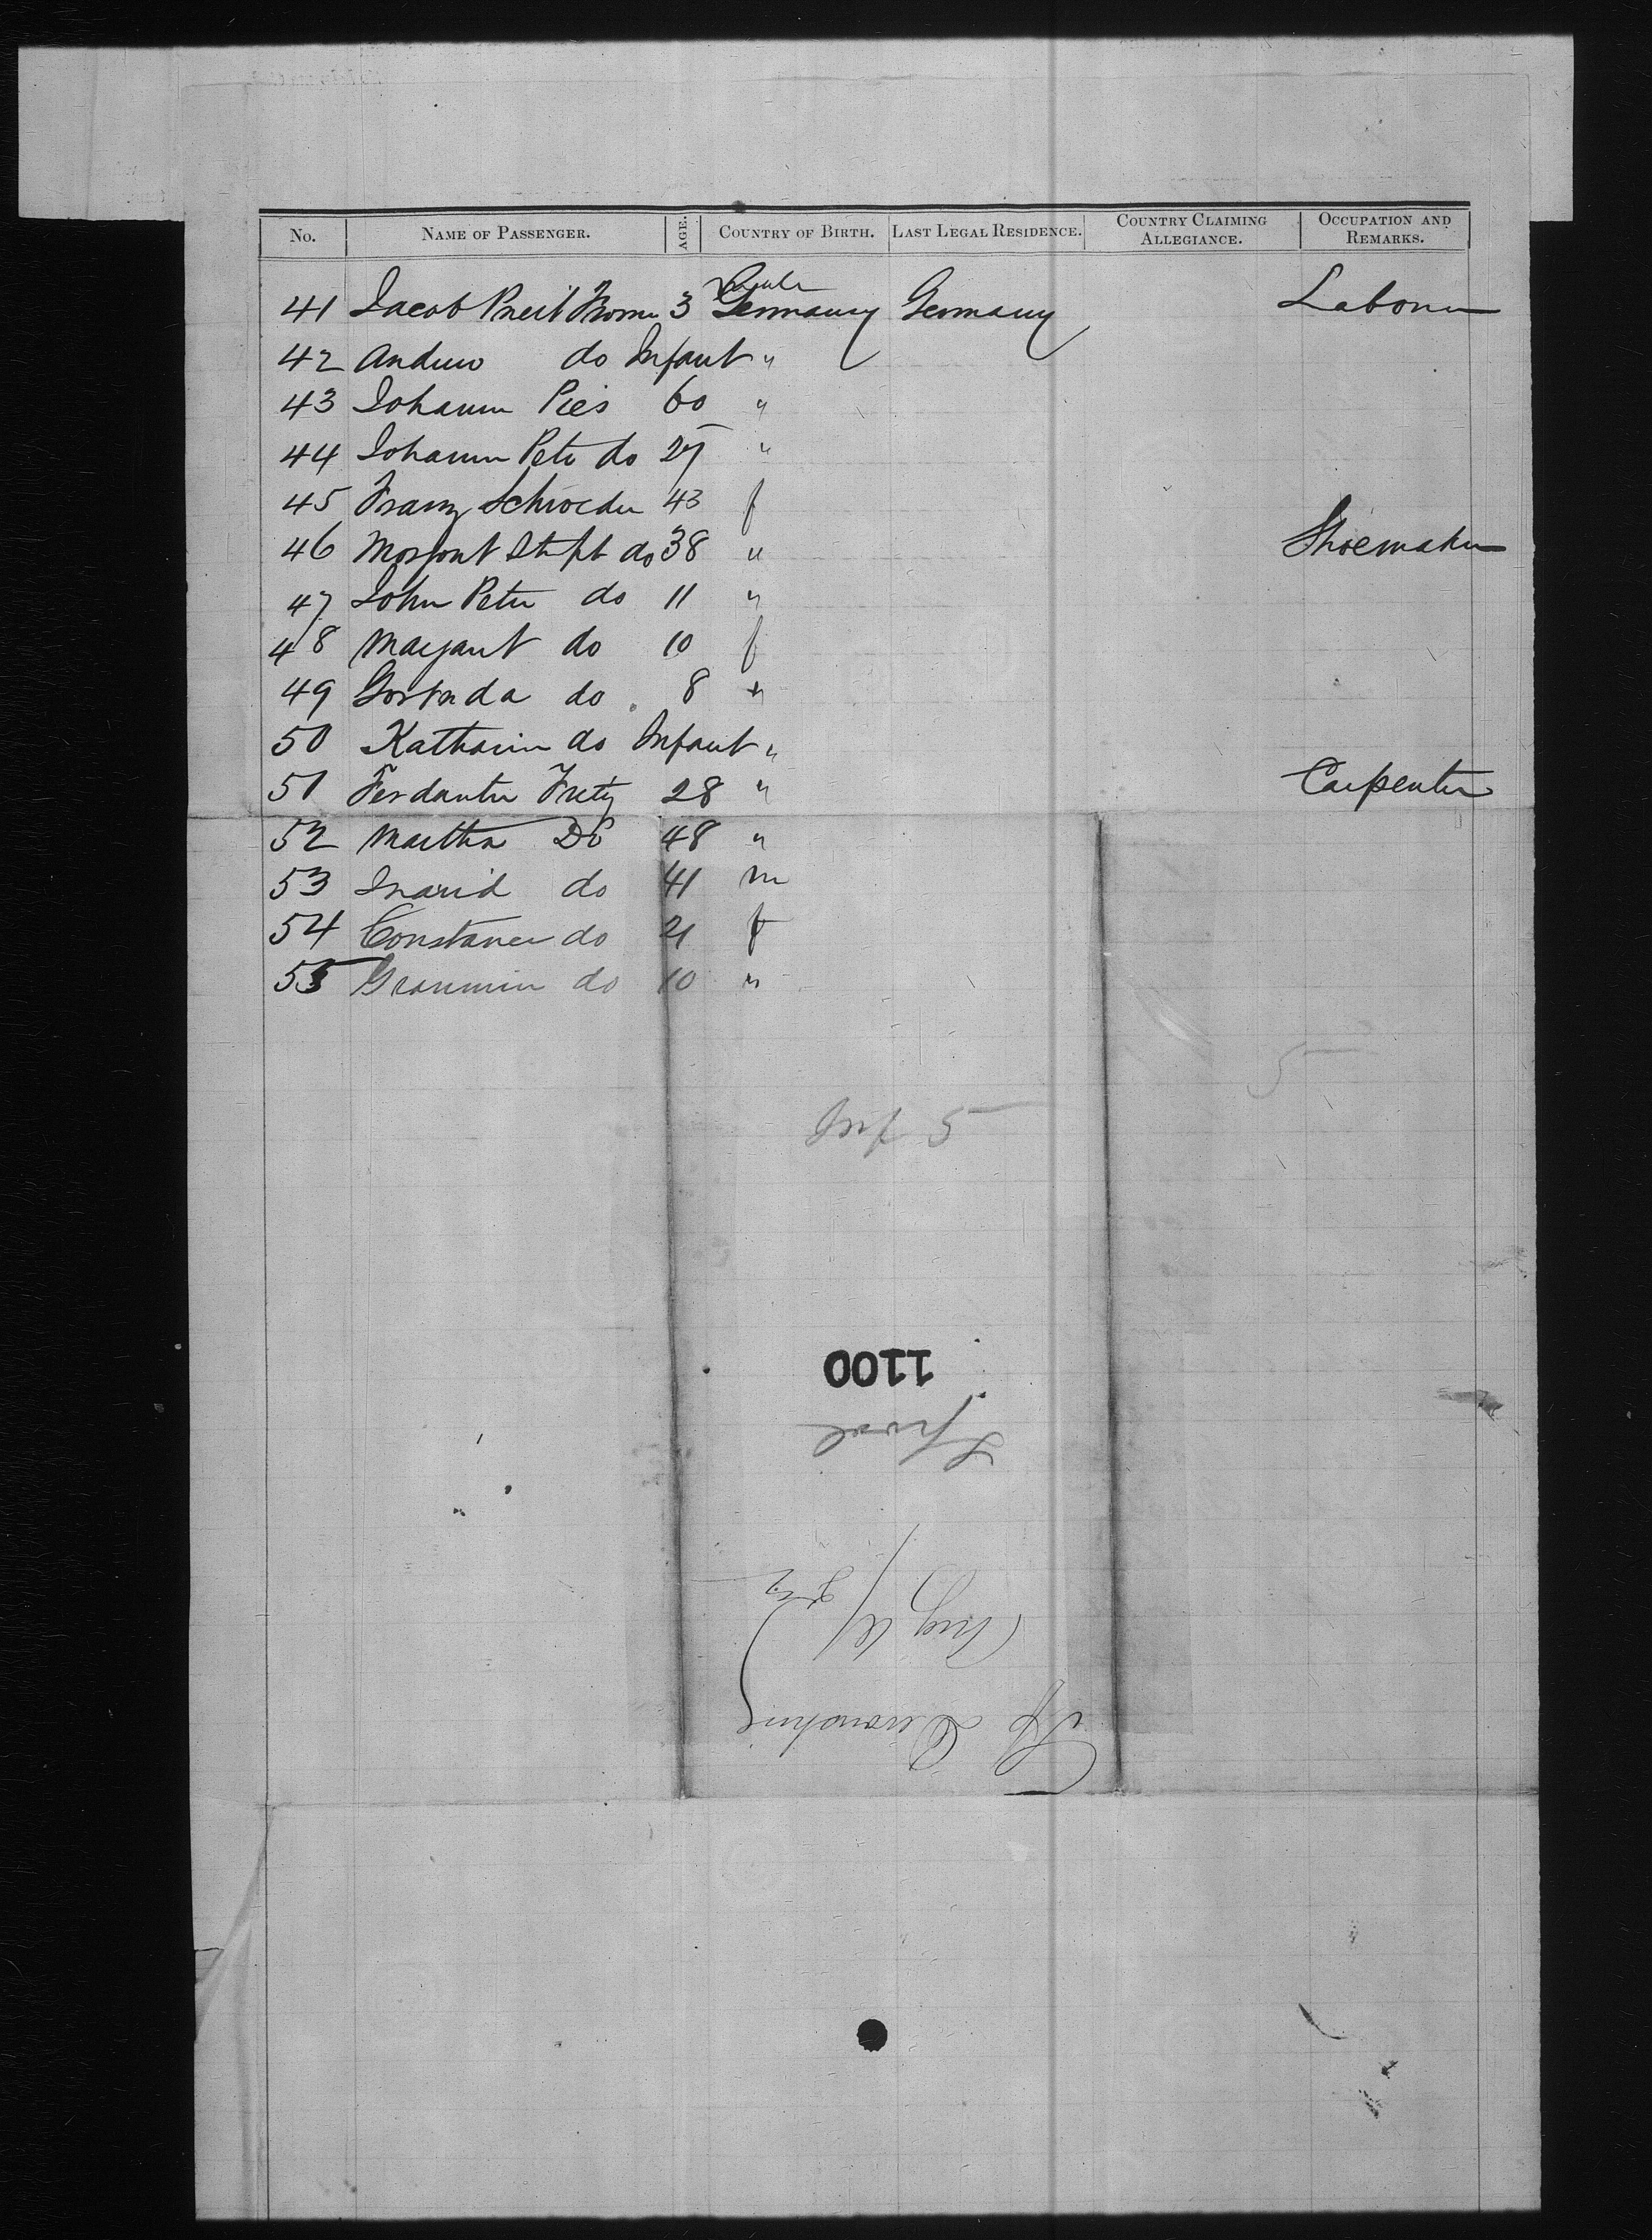 No. NAME OF PASSENGER. AGE. COUNTRY OF BIRTH. LAST LEGAL RESIDENCE. COUNTRY CLAIMING ALLEGIANCE. OCCUPATION AND REMARKS.
41 Jacob 3 Germany Germany Laborer
42 Andrew do Infant "
43 Johann Pies 60 "
44 Johann Peter do 27 "
45 Franz Schroeder 43 f
46 do 38 " Shoemaker
47 John Peter do 11 "
48 Margaret do 10 f
49 do 8 "
50 Katharin do Infant "
51 28 " Carpenter
52 Martha Do 48 "
53 do 41 m
54 Constance do 21 f
55 do 10 "
5
Inf 5
1100
Lpool
Devonshire